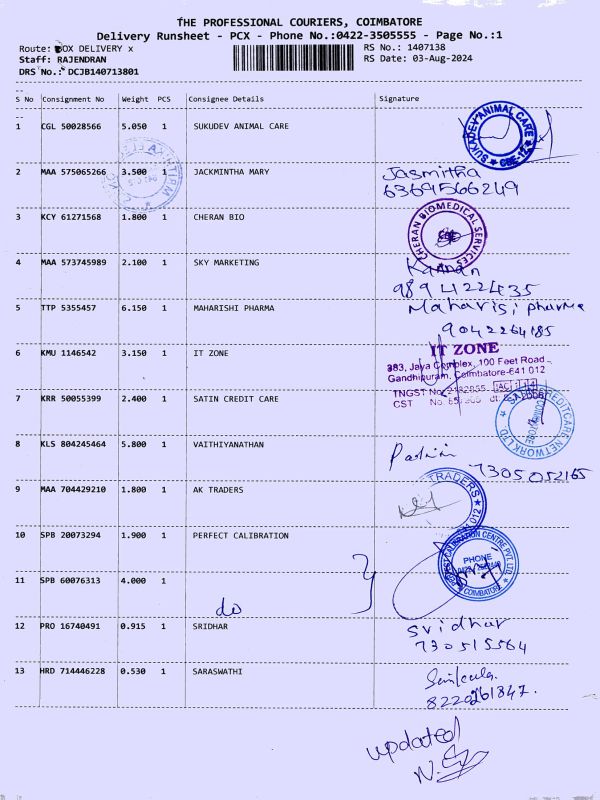 THE PROFESSIONAL COURIERS, COIMBATORE
Delivery Runsheet - PCX - Phone No.:0422-3505555 - Page No.:1
Route: BOX DELIVERY x
RS No.: 1407138
Staff: RAJENDRAN
RS Date: 03-Aug-2024
DRS No.: DCJB140713801
S No Consignment No Weight PCS Consignee Details Signature
1 CGL 50028566 5.050 1 SUKUDEV ANIMAL CARE
SUKADEV ANIMAL CARE
CBE-12
2 MAA 575065266 3.500 1 JACKMINTHA MARY Jasmitha
6369566249
3 KCY 61271568 1.800 1 CHERAN BIO
CHERAN BIOMEDICAL SERVICES
4 MAA 573745989 2.100 1 SKY MARKETING Kannan
9894422435
5 TTP 5355457 6.150 1 MAHARISHI PHARMA Maharisi pharma
9042264185
6 KMU 1146542 3.150 1 IT ZONE
IT ZONE
383, Jaya Complex, 100 Feet Road -
Gandhipuram, Coimbatore-641 012
TNGST No.
CST No.
7 KRR 50055399 2.400 1 SATIN CREDIT CARE
CREDITCARE NETWORK LTD
COIMBATORE
8 KLS 804245464 5.800 1 VAITHIYANATHAN
7305052165
9 MAA 704429210 1.800 1 AK TRADERS
TRADERS
10 SPB 20073294 1.900 1 PERFECT CALIBRATION
PERFECT CALIBRATION CENTRE PVT. LTD.
PHONE
COIMBATORE
11 SPB 60076313 4.000 1
do
12 PRO 16740491 0.915 1 SRIDHAR Sridhar
730515564
13 HRD 714446228 0.530 1 SARASWATHI
updated